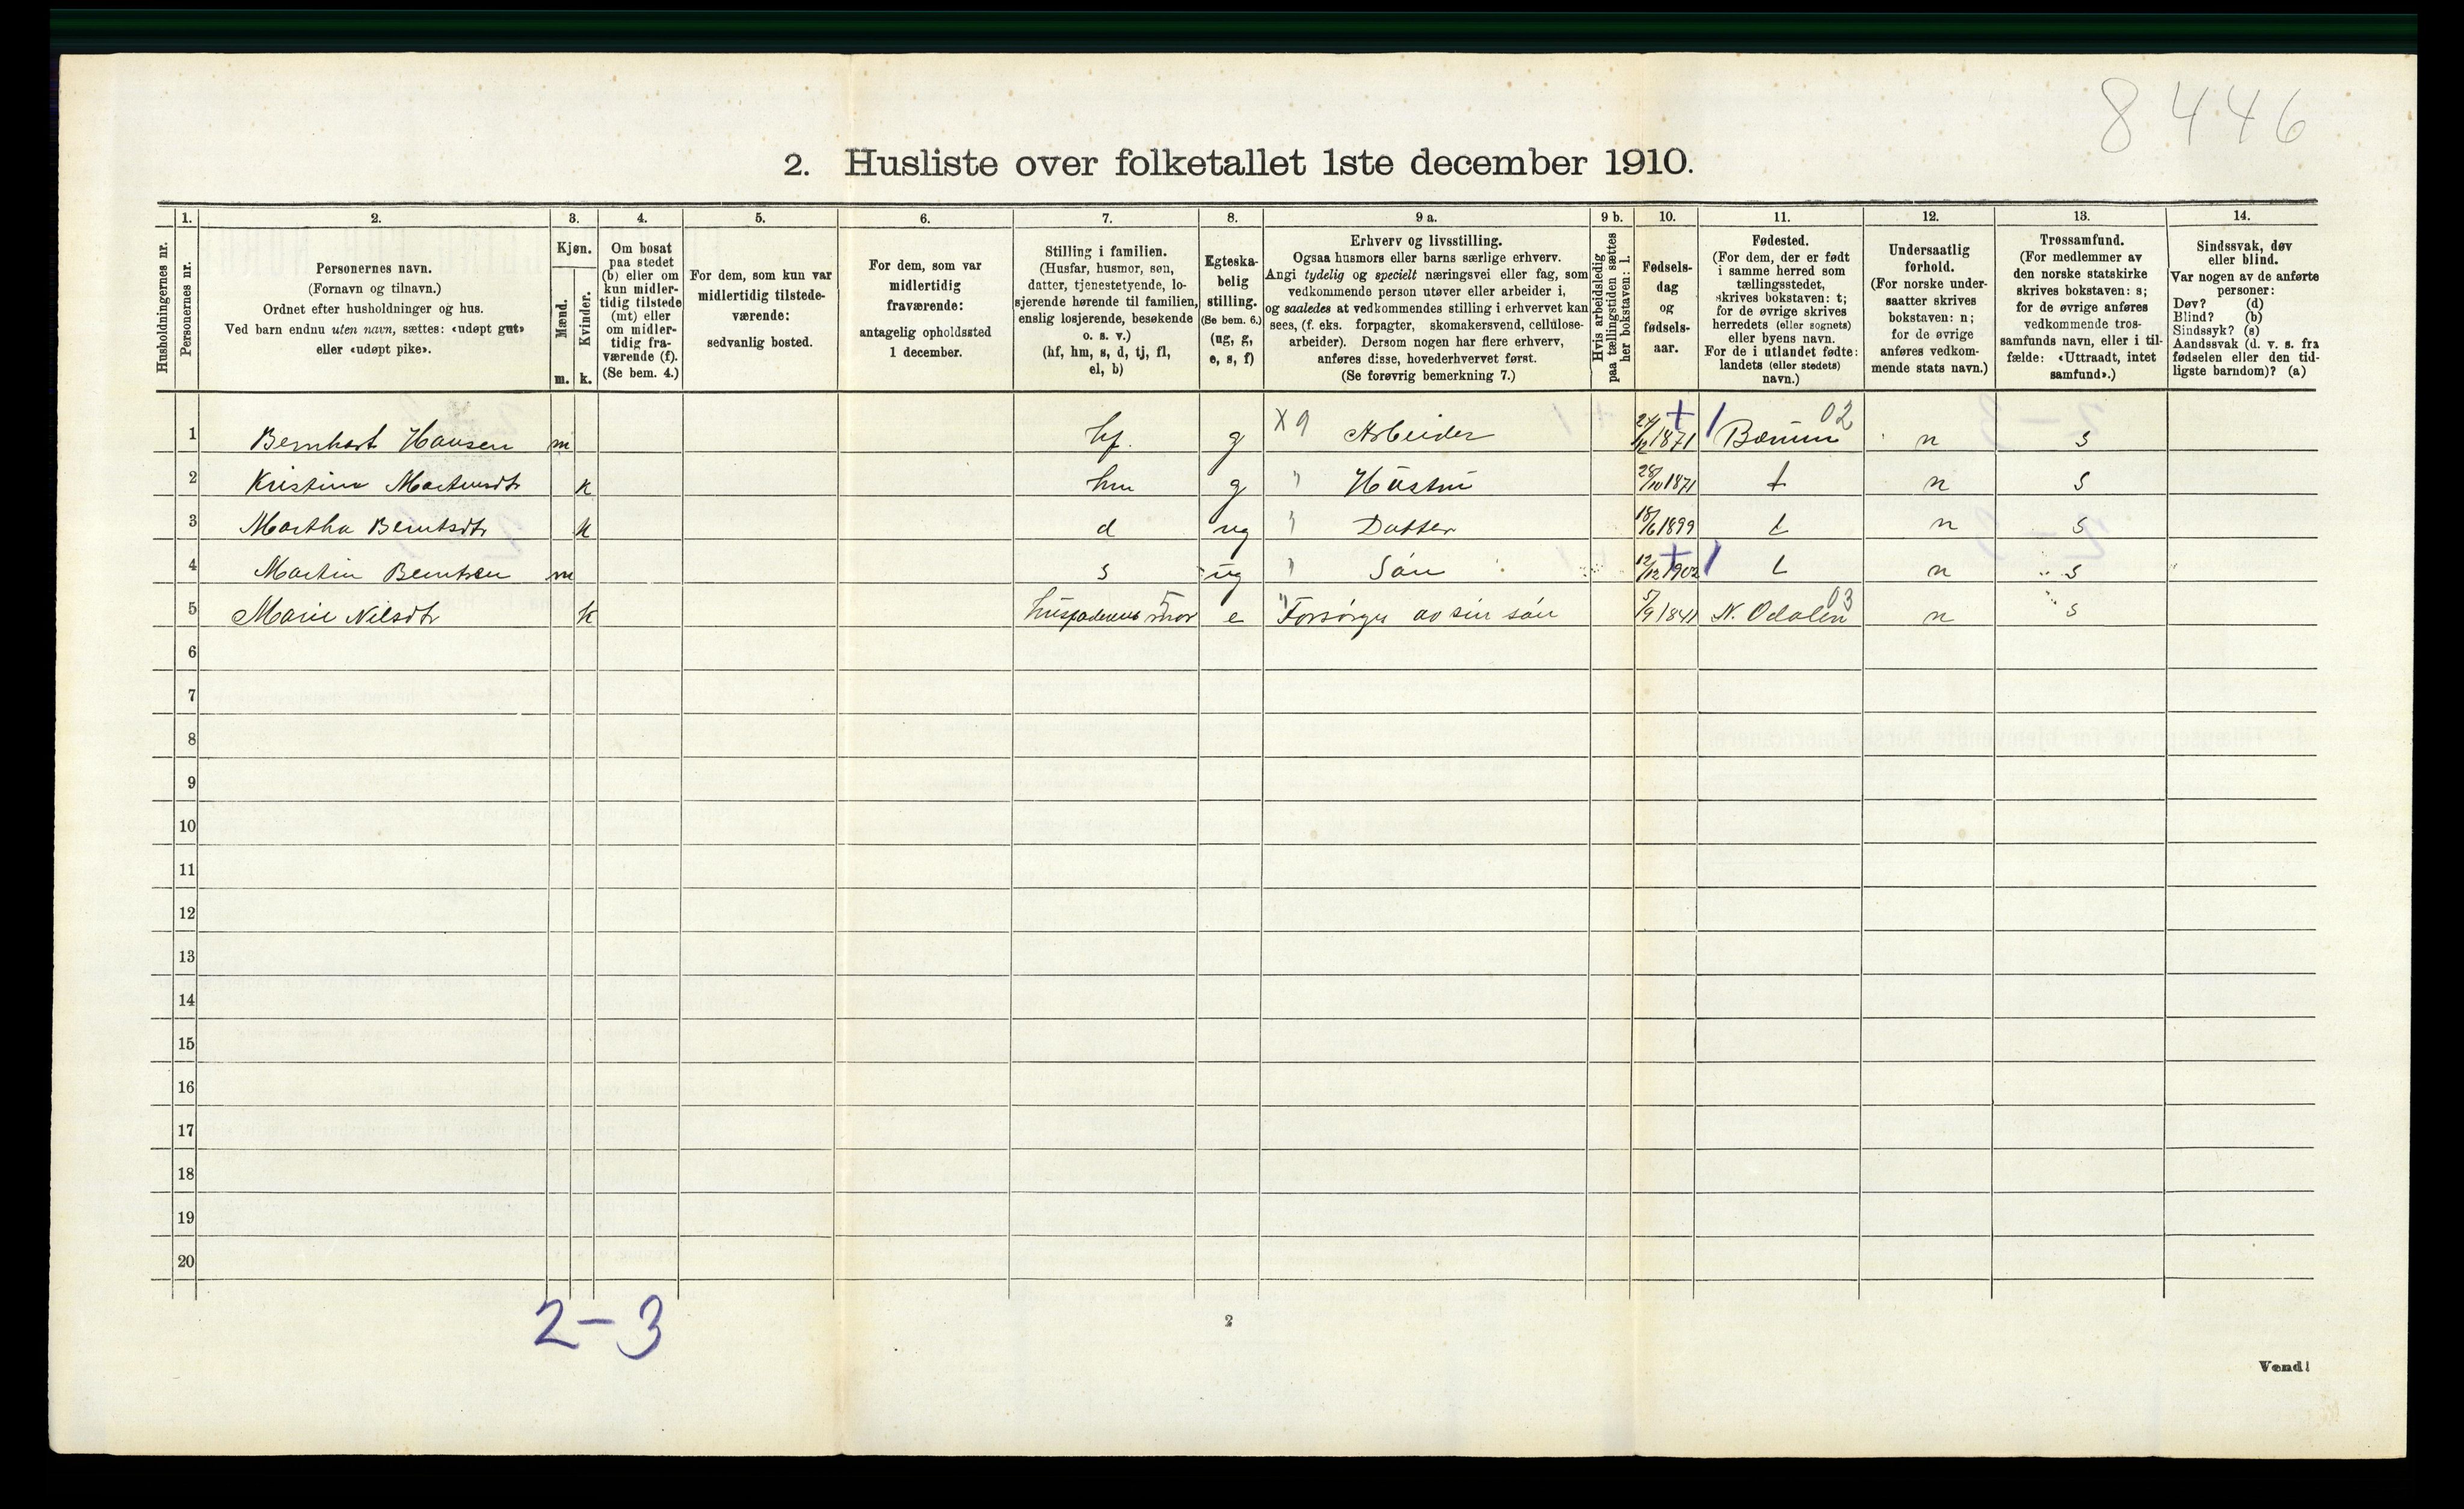 8446
2. Husliste over folketallet 1ste december 1910.
Husholdningernes nr.
1.
Personernes nr.
2.
Personernes navn.
(Fornavn og tilnavn.)
Ordnet efter husholdninger og hus.
Ved barn endnu uten navn, sættes: «udøpt gut»
eller «udøpt pike».
3.
Kjøn.
Mænd.
Kvinder.
m. k.
4.
Om bosat
paa stedet
(b) eller om
kun midler-
tidig tilstede
(mt) eller
om midler-
tidig fra-
værende (f).
(Se bem. 4.)
5.
For dem, som kun var
midlertidig tilstede-
værende:
sedvanlig bosted.
6.
For dem, som var
midlertidig
fraværende:
antagelig opholdssted
1 december.
7.
Stilling i familien.
(Husfar, husmor, søn,
datter, tjenestetyende, lo-
sjerende hørende til familien,
enslig losjerende, besøkende
o. s. v.)
(hf, hm, s, d, tj, fl,
el, b)
8.
Egteska-
belig
stilling.
(Se bem. 6.)
(ug, g,
e, s, f)
9 a.
Erhverv og livsstilling.
Ogsaa husmors eller barns særlige erhverv.
Angi tydelig og specielt næringsvei eller fag, som
vedkommende person utøver eller arbeider i,
og saaledes at vedkommendes stilling i erhvervet kan
sees, (f. eks. forpagter, skomakersvend, cellulose-
arbeider). Dersom nogen har flere erhverv,
anføres disse, hovederhvervet først.
(Se forøvrig bemerkning 7.)
9 b.
Hvis arbeidsledig
paa tællingstiden sættes
her bokstaven: l.
10.
Fødsels-
dag
og
fødsels-
aar.
11.
Fødested.
(For dem, der er født
i samme herred som
tællingsstedet,
skrives bokstaven: t;
for de øvrige skrives
herredets (eller sognets)
eller byens navn.
For de i utlandet fødte:
landets (eller stedets)
navn.)
12.
Undersaatlig
forhold.
(For norske under-
saatter skrives
bokstaven: n;
for de øvrige
anføres vedkom-
mende stats navn.)
13.
Trossamfund.
(For medlemmer av
den norske statskirke
skrives bokstaven: s;
for de øvrige anføres
vedkommende tros-
samfunds navn, eller i til-
fælde: «Uttraadt, intet
samfund».)
14.
Sindssvak, døv
eller blind.
Var nogen av de anførte
personer:
Døv? (d)
Blind? (b)
Sindssyk? (s)
Aandssvak (d. v. s. fra
fødselen eller den tid-
ligste barndom)? (a)
1 Bernhart Hansen m hf. g X 9 Arbeider 24/12 1871 + 1 Bærum 02 n s
2 Kristine Martinsdtr k hm g " Hustru 28/10 1871 t n s
3 Martha Berntsdtr k d ug " Datter 18/6 1899 t n s
4 Martin Berntsen m s ug " Sön 12/12 1902 + 1 t n s
5 Marie Nilsdtr k husfaderens mor e " Forsörges av sin sön 5/9 1841 N. Odalen 03 n s
6
7
8
9
10
11
12
13
14
15
16
17
18
19
20
2-3
2
Vend!